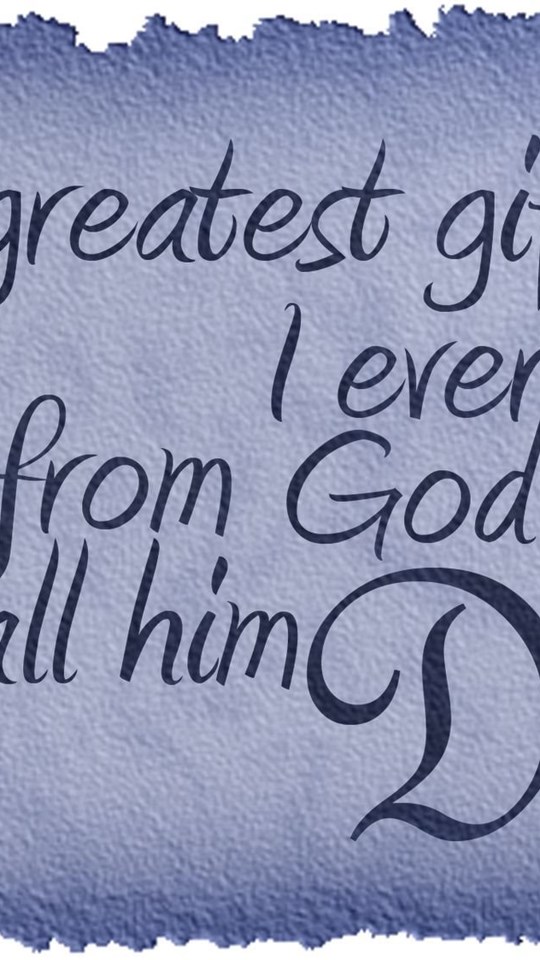 greatest gif
I ever
from God
all him D